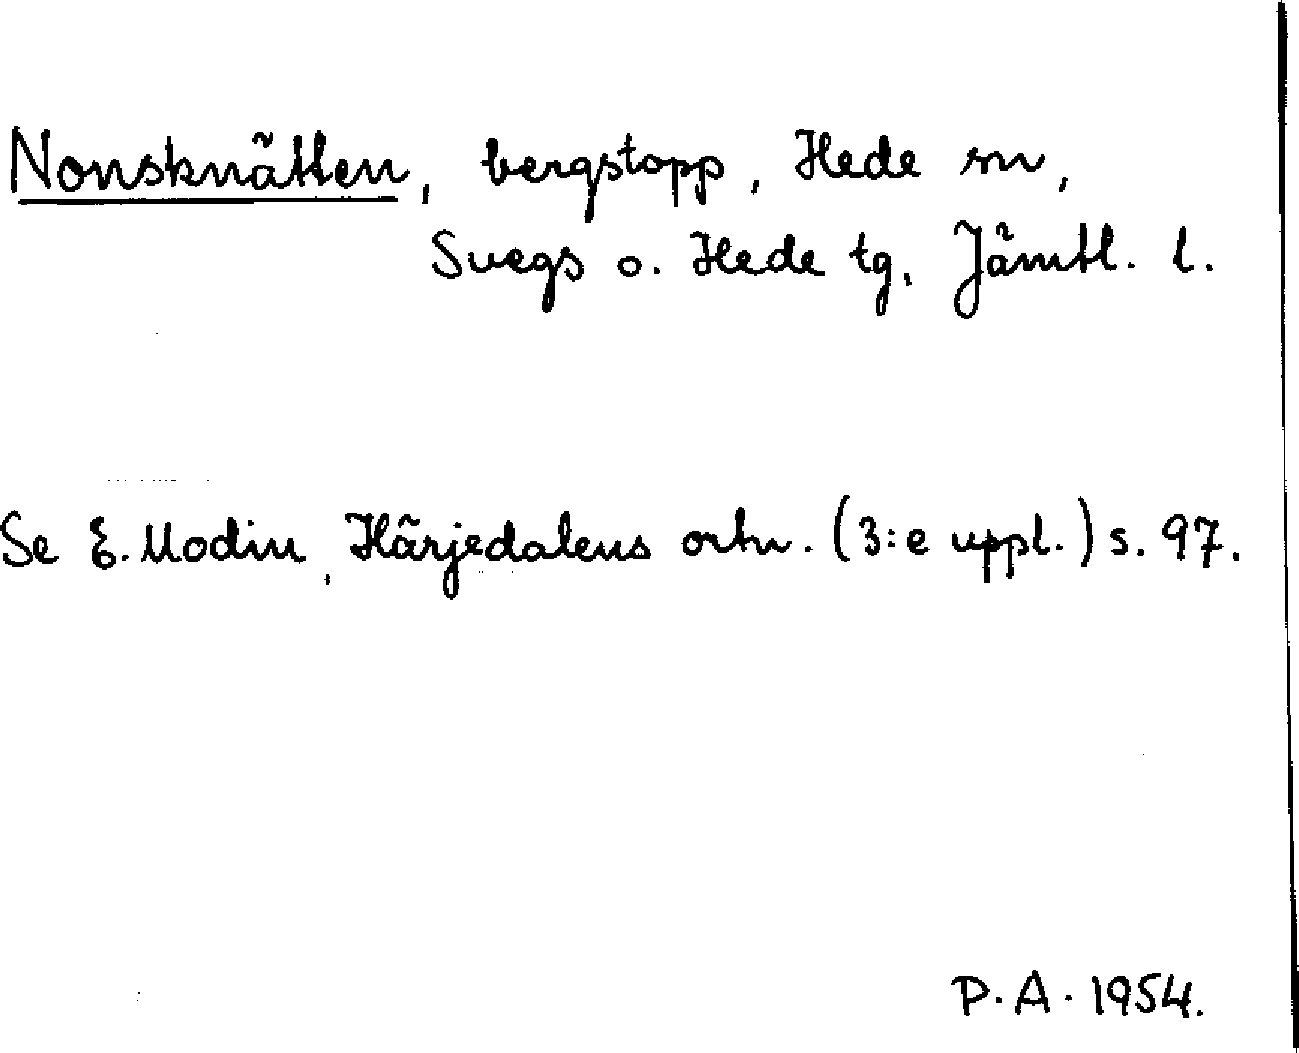 Nonsknätten, bergstopp, Hede sn,
Svegs o. Hede tg, Jämtl. l.
Se E. Modin, Härjedalens ortn. (3:e uppl.) s. 97.
P.A. 1954.